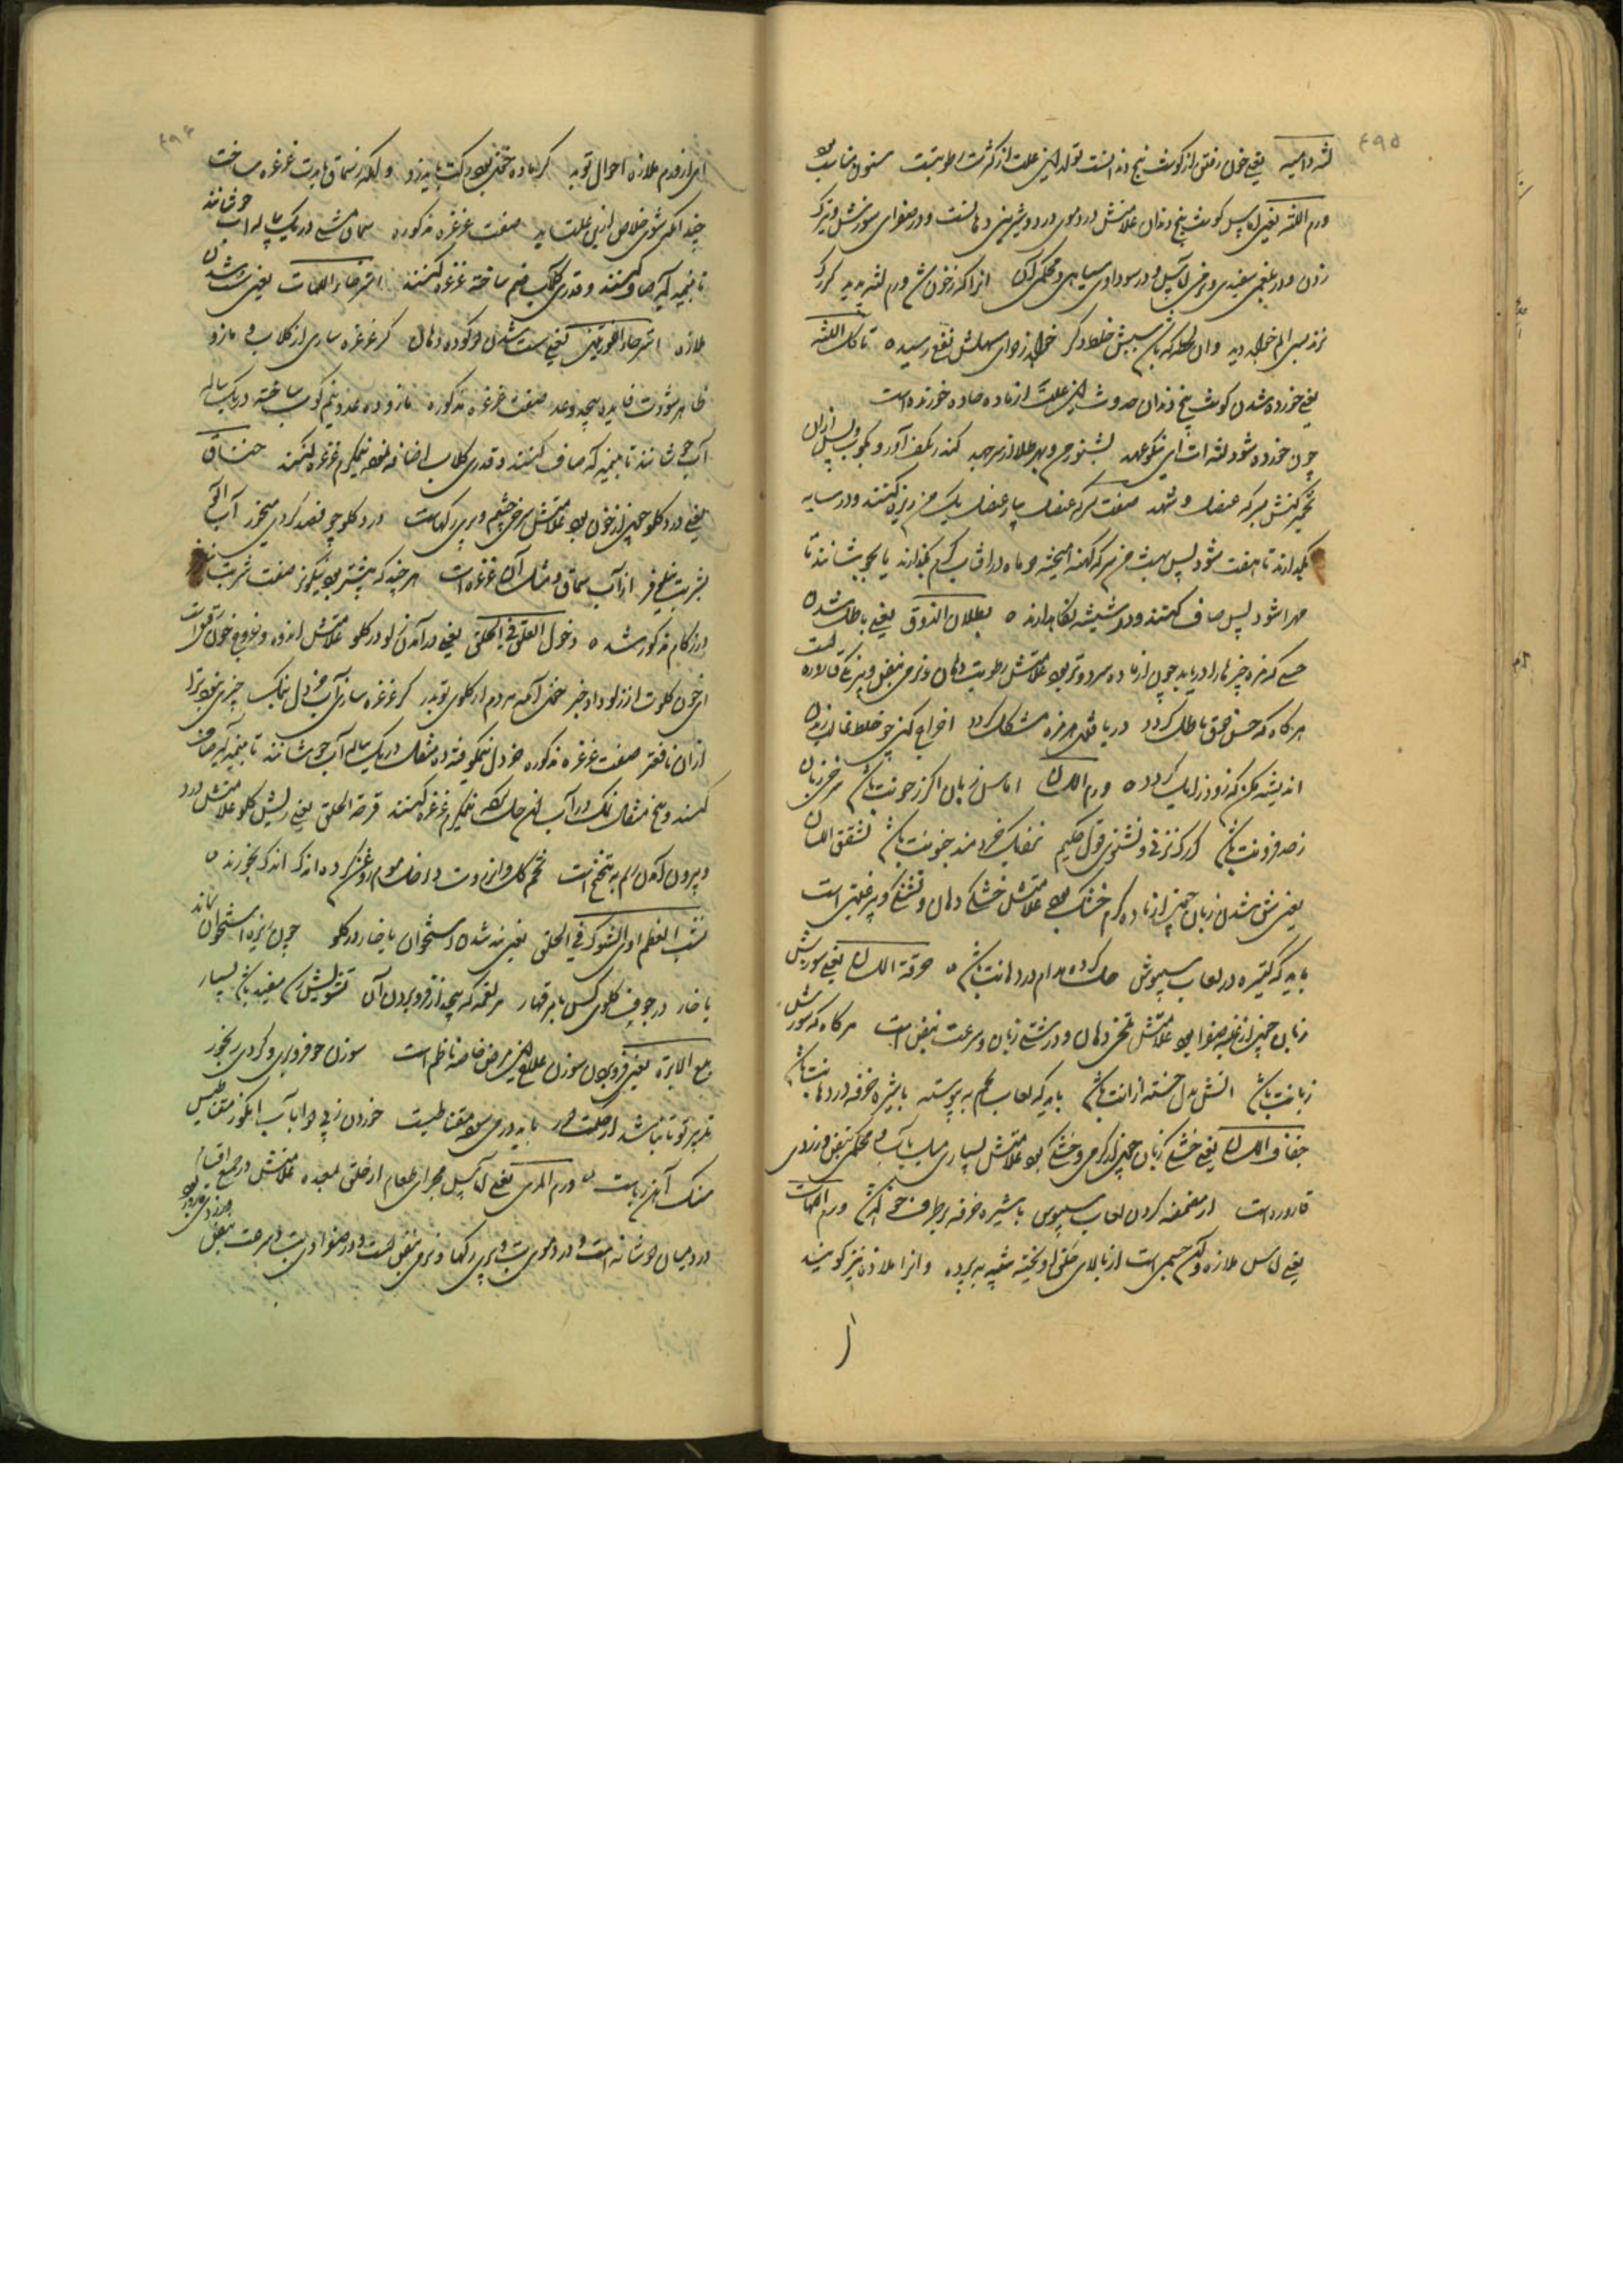 ۴۹۵
لثه دامیه یعنی خون رفتن از گوشت بیخ دندانست تولد این علت از کثرت رطوبتست سنون مناسب بود
ورم اللثه یعنی آماس گوشت بیخ دندان علامتش در دموی درد و شیرینی دهانست و در صفراوی سوزش و تیزک
زدن و در بلغمی سفیدی و نرمی آماس و در سوداوی سیاهی و محکمی آن آنرا که ز خون ورم لثه پدید کرد رک
نزند بسی الم خواهد دید وان لحظه که باشد سببش خلط دگر خواهد ز دوای مسهلش نفع رسید تاکل اللثه
یعنی خورده شدن گوشت بیخ دندان حدوث این علت از ماده حاده خورنده است
چون خورده شود لثه ات ای نیکو عهد بشنو ز من و بهر علاج کن جهد کندر بکف آور و بکوب و پس ازان
خمیر کنش بسرکه عنصل و شهد صفت سرکه عنصل پیاز عنصل یک من ریزه کنند و در سایه
نگهدارند تا هفت شود پس بهشت من سرکه کهنه آمیخته دو ماه در آفتاب گرم بگذارند یا بجوشانند تا
مهرا شود پس صاف کنند و در شیشه نگاه دارند بطلان الذوق یعنی باطل شدن
حسی که مزه چیزها را دریابد چون از ماده سرد و تر بود علامتش رطوبت دهان و نرمی نبض و بیرنگی قاروره است
هرگاه که حس ذوق باطل گردد دریافتن هر مزه مشکل گردد اخراج کن چو خلط غالب زبدن
اندیشه مکن که زود زایل گردد ورم اللسان آماس زبان اگر ز خونت باشد سرخی زبان
ز حد فزونت باشد گر رک نزنی و نشنوی قول حکیم نفع خردمند چونت باشد تشقق اللسان
یعنی شق شدن زبان چون از ماده گرم خشک بود علامتش خشکی دهان و تشنگی و پیرغبتی است
باید که کتیره در لعاب سپیوش حل کرده مدام در دهانت باشد حرقة اللسان یعنی سوزش
زبان چون از غلبه صفرا بود علامتش تلخی دهان و درشتی زبان و سرعت نبض است هرگاه که سوزش
زبانت باشد آتش بدل خسته ازانت باشد باید که لعاب تخم به پیوسته باشیره خرفه در دهانت باشد
جفاف اللسان یعنی خشکی زبان چون از گرمی و خشکی بود علامتش بسیاری میل بآب و محکمی نبض و زردی
قاروره است از مضمضه کردن لعاب سپیوس باشیره خرفه برطرف خواهد شد ورم اللهات
یعنی آماس ملازه و آن جسمی است از بالای حلق آویخته شبیه به پرده و آنرا ملاذه نیز گویند
ا
۴۹۶
ای از ورم ملازه احوال تو بد گر ماده خون بود رکت باید زد وانگه ز سماق بایدت غرغره ساخت
چندانکه شوی خلاص ازین علت بد صفت غرغره مذکوره سماق مشتی در یک پیاله آب جوشانند
تا بنیمه آید صاف کنند و قدری گلاب ضم ساخته غرغره کنند استرخاء اللهات یعنی سست شدن
ملازه استرخاء اللوزتین یعنی سست شدن دو گوده دهان گر غرغره سازی از گلاب و مازو
ظاهر شودت فایده بیحد و عد صفت غرغره مذکوره مازو ده عدد نیم کوب ساخته در یک پیاله
آب جوشانند تا بنیمه آید صاف کنند و قدری گلاب اضافه نموده نیمگرم غرغره کنند خناق
یعنی درد گلو چون از خون بود علامتش سرخی چشم و پری رگهاست درد گلو چو فصد کردی میخور آب آلو
بشربت نیلوفر از آب سماق و مثل آن غرغره است هر چند که بیشتر بود نیکوتر صفت شربت نیلوفر
در زکام مذکور شد دخول العلق فی الحلق یعنی درآمدن زلو در گلو علامتش اندوه و خروج خون رقیق است
ای خون گلوت از زلو داد خبر خون آمد هر دم از گلوی تو بدر گر غرغره سازی آب خردل بنمک چیزی نبود ترا
ازان نافعتر صفت غرغره مذکوره خردل نیمکوفته ده مثقال در یک پیاله آب جوشانند تا بنیمه آید صاف
کنند و پنج مثقال نمک در آب آن حل کرده نیمگرم غرغره کنند قرحة الحلق یعنی ریش گلو علامتش درد
و بیرون آمدن ریم به تنحنح است تخم گل و انزروت داخل موم روغن کرده اندک اندک بخورند
نشب العظم او الشوک فی الحلق یعنی بند شدن استخوان یا خار در گلو چون ریزه استخوان بماند
یا خار در جوف گلوی کس بامر قهار هر لقمه که پیچد از فرو بردن آن تشویش کن مفید باشد بسیار
بلع الابره یعنی فرو بردن سوزن علاج این مرض خاصه ناظم است سوزن چو فرو بردی و کردی رنجور
تدبیر تو تا نباشد از حکمت دور باید دو درمی سوده مقناطیست خوردن زپی دوا بآب انگور مقناطیس
سنگ آهن رباست ورم المری یعنی آماس مجرای طعام از حلق بمعده علامتش در جمیع اقسام
درد میان دو شانه است و در دموی تب و پری رگها و نرمی نبض است و در صفراوی تب و سرعت نبض
و زردی قاروره بود